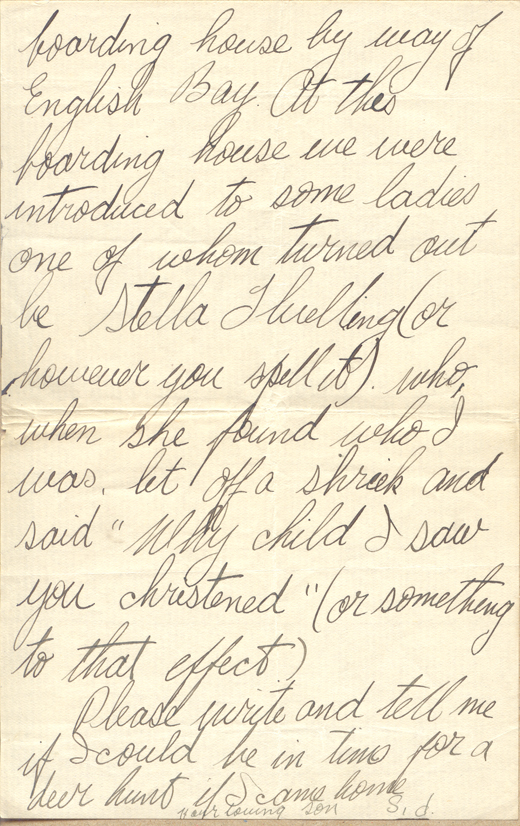 boarding house by way of
English Bay. At this
boarding house we were
introduced to some ladies
one of whom turned out
be Stella Fluelling (or
however you spell it). who,
when she found who I
was, let off a shriek and
said "Why child I saw
you christened" (or something
to that effect)
Please write and tell me
if I could be in time for a
deer hunt if I came home
Your loving son S. J.